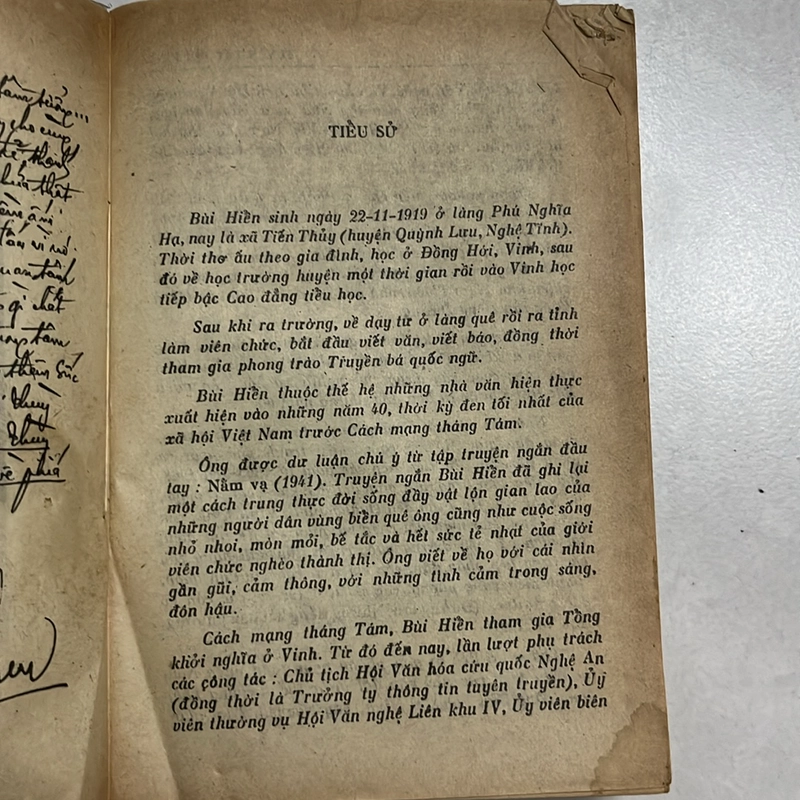 TIỂU SỬ
Bùi Hiển sinh ngày 22-11-1919 ở làng Phú Nghĩa
Hạ, nay là xã Tiến Thủy (huyện Quỳnh Lưu, Nghệ Tĩnh).
Thời thơ ấu theo gia đình, học ở Đồng Hới, Vinh, sau
đó về học trường huyện một thời gian rồi vào Vinh học
tiếp bậc Cao đẳng tiểu học.
Sau khi ra trường, về dạy tư ở làng quê rồi ra tỉnh
làm viên chức, bắt đầu viết văn, viết báo, đồng thời
tham gia phong trào Truyền bá quốc ngữ.
Bùi Hiển thuộc thế hệ những nhà văn hiện thực
xuất hiện vào những năm 40, thời kỳ đen tối nhất của
xã hội Việt Nam trước Cách mạng tháng Tám.
Ông được dư luận chú ý từ tập truyện ngắn đầu
tay : Nằm vạ (1941). Truyện ngắn Bùi Hiển đã ghi lại
một cách trung thực đời sống đầy vật lộn gian lao của
những người dân vùng biển quê ông cũng như cuộc sống
nhỏ nhoi, mòn mỏi, bế tắc và hết sức tẻ nhạt của giới
viên chức nghèo thành thị. Ông viết về họ với cái nhìn
gần gũi, cảm thông, với những tình cảm trong sáng,
đôn hậu.
Cách mạng tháng Tám, Bùi Hiển tham gia Tổng
khởi nghĩa ở Vinh. Từ đó đến nay, lần lượt phụ trách
các công tác : Chủ tịch Hội Văn hóa cứu quốc Nghệ An
(đồng thời là Trưởng ty thông tin tuyên truyền), Ủy
viên thường vụ Hội Văn nghệ Liên khu IV, Ủy viên biên